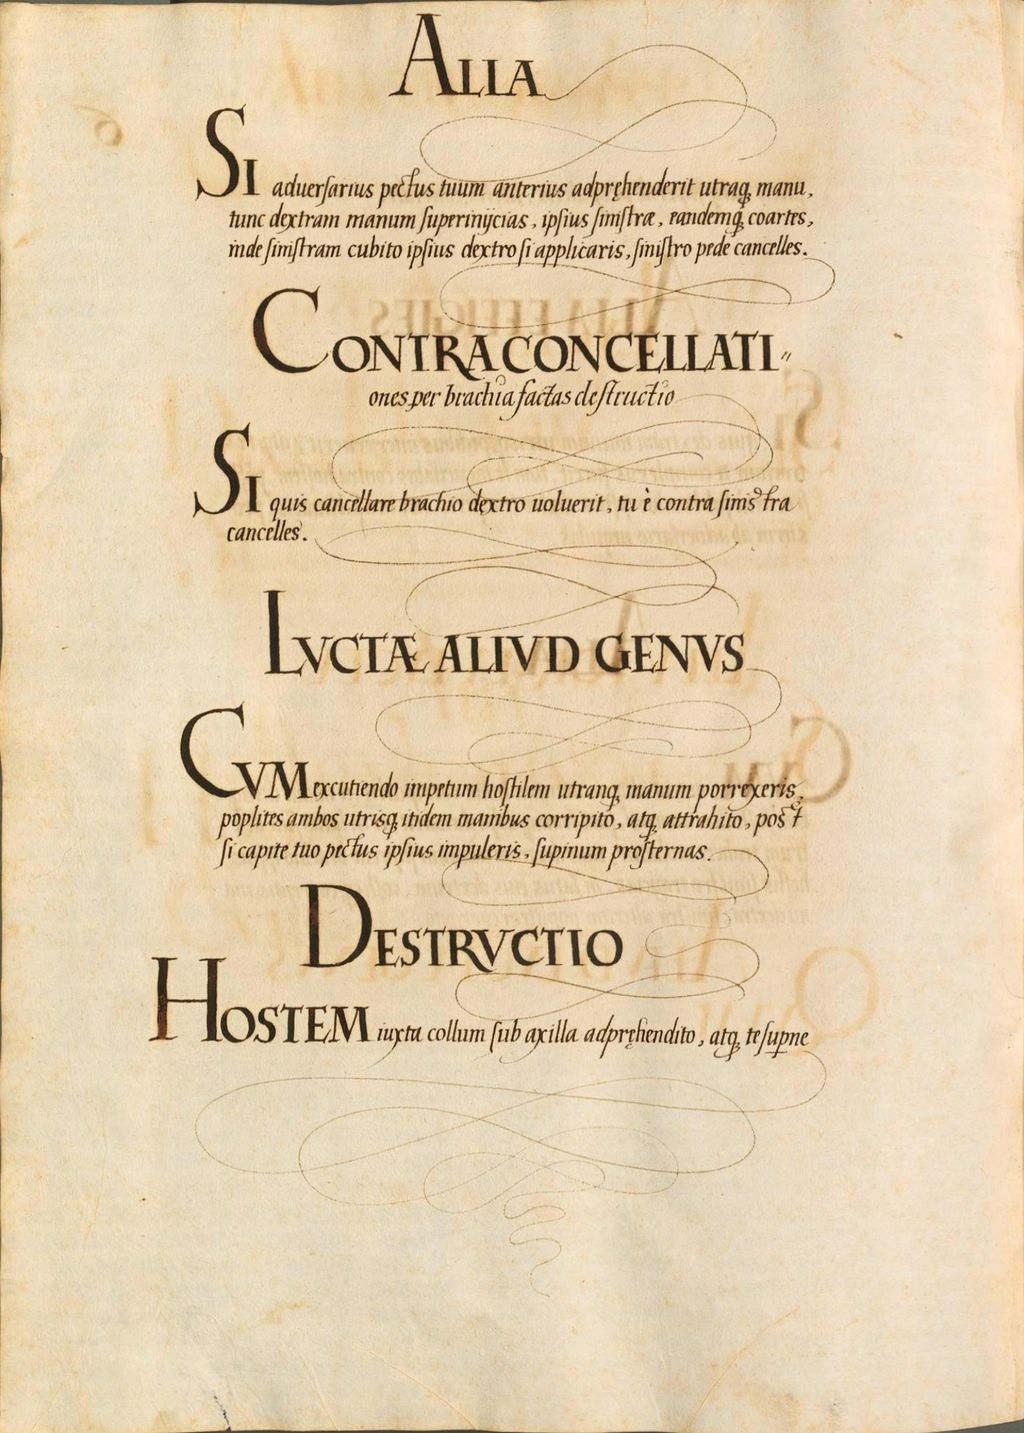 ALLA
SI aduersarius pectus tuum anterius adpręhenderit utraq, manu,
tunc dextram manum superinijcias, ipsius sinistræ, eandemq, coartes,
inde sinistram cubito ipsius dextro si applicaris, sinistro pede cancelles.
CONTRA CONCELLATI〃
ones per brachia factas destructio
SI quis cancellare brachio dextro uoluerit, tu è contra sinistra
cancelles.
LVCTÆ ALIVD GENVS
CVM excutiendo impetum hostilem utranq, manum porrexeris,
poplites ambos utrisq, itidem manibus corripito, atq, attrahito, post
si capite tuo pectus ipsius impuleris, supinum prosternas.
DESTRVCTIO
HOSTEM iuxta collum sub axilla adpręhendito, atq, te supne